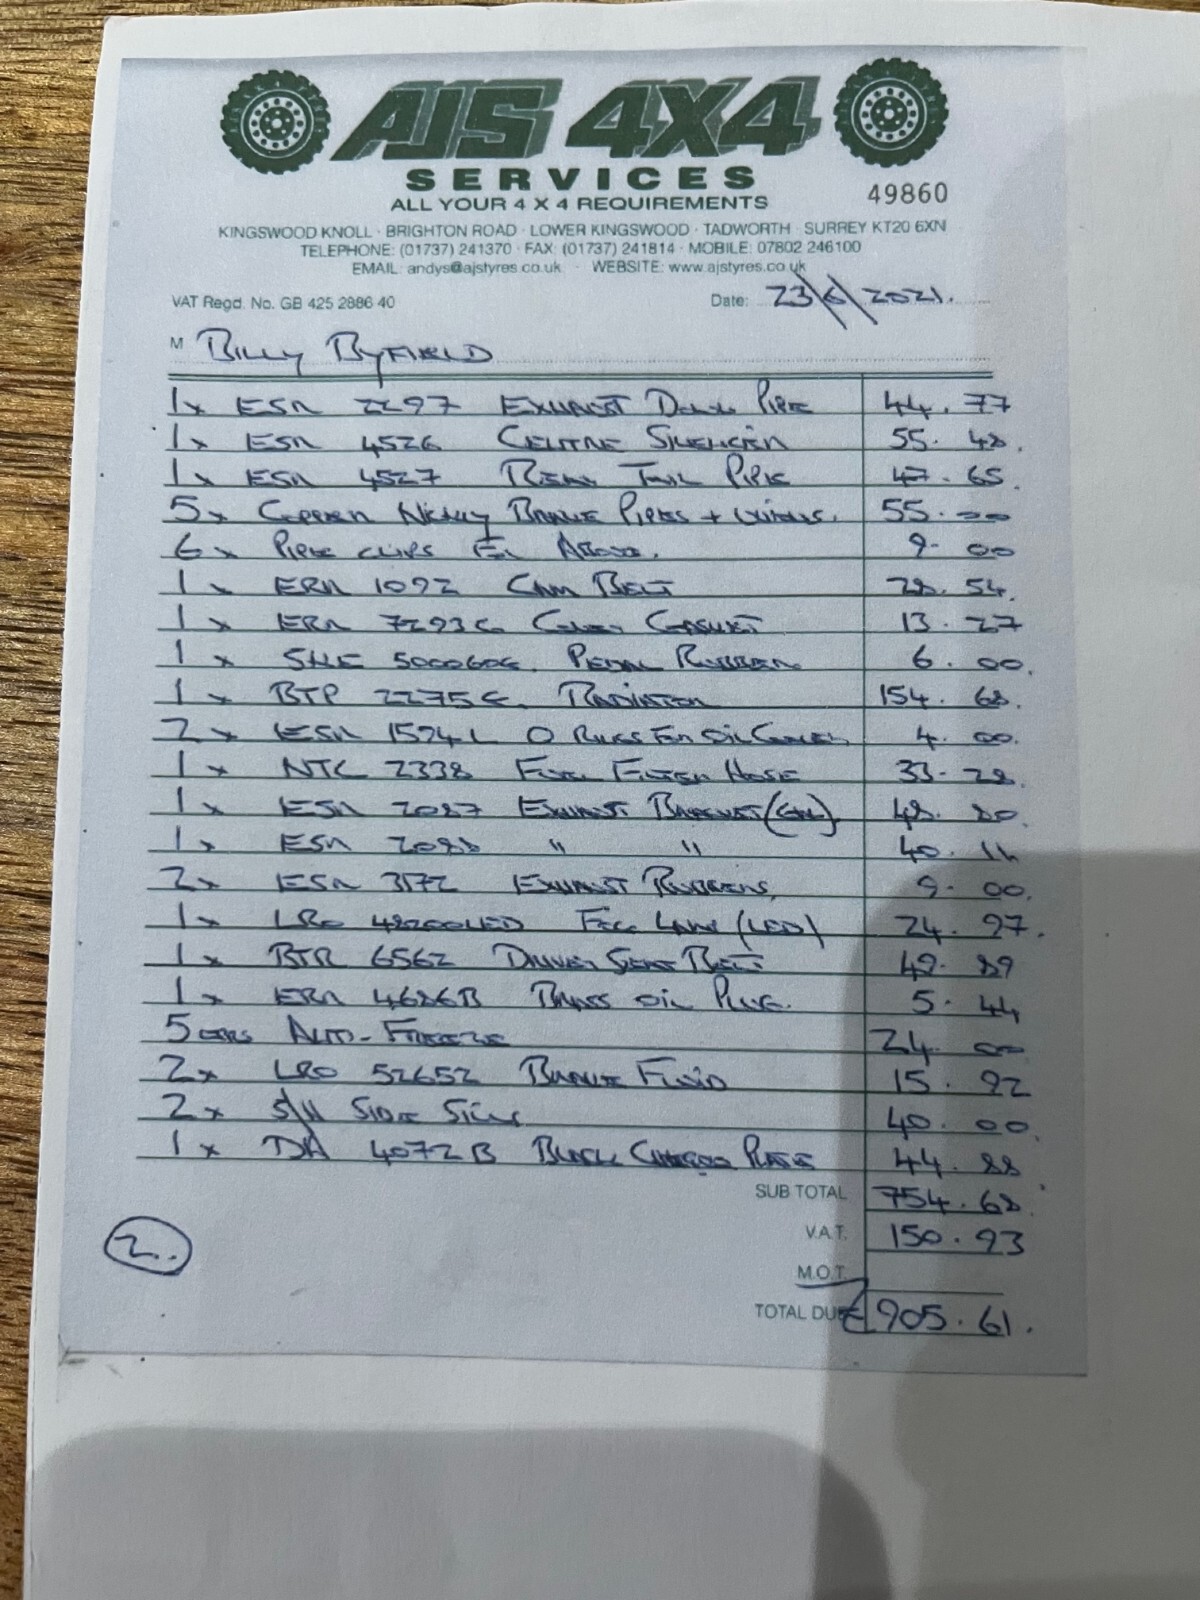 AJS 4X4
SERVICES
ALL YOUR 4 X 4 REQUIREMENTS
49860
KINGSWOOD KNOLL · BRIGHTON ROAD · LOWER KINGSWOOD · TADWORTH · SURREY KT20 6XN
TELEPHONE: (01737) 241370 · FAX: (01737) 241814 · MOBILE: 07802 246100
EMAIL: andys@ajstyres.co.uk · WEBSITE: www.ajstyres.co.uk
VAT Regd. No. GB 425 2886 40 Date: 23/6/2021.
M BILLY BYFIELD
1x ESR 2297 EXHAUST DOWN PIPE 44.77
1x ESR 4526 CENTRE SILENCER 55.48.
1x ESR 4527 REAR TAIL PIPE 47.65.
5x COPPER BRAKE PIPES + UNIONS. 55.00
6x PIPE CLIPS FOR ABOVE. 9.00
1x ERR 1092 CAM BELT 28.54.
1x ERR 7293 COVER GASKET 13.27
1x 500060 PEDAL RUBBER 6.00.
1x BTP 2275 RADIATOR 154.68.
2x ESR 1594L O RINGS FOR OIL COOLER 4.00.
1x NTC 2338 FUEL FILTER HOSE 33.28.
1x ESR 2087 EXHAUST BRACKET 48.80.
1x ESR 2088 " " 40.14
2x ESR 3172 EXHAUST RUBBERS, 9.00.
1x LRO FOG LAMP (LED) 24.97.
1x BTR 6562 DRIVER SEAT BELT 49.89
1x ERR 4686B BRASS OIL PLUG. 5.44
5 ANTI-FREEZE 24.00
2x LRO 52652 BRAKE FLUID 15.92
2x S/H SIDE SILLS 40.00.
1x DA 4072B BLACK CHEQUER PLATE 44.88
SUB TOTAL 754.68.
V.A.T. 150.93
M.O.T.
2..
TOTAL DUE £905.61.